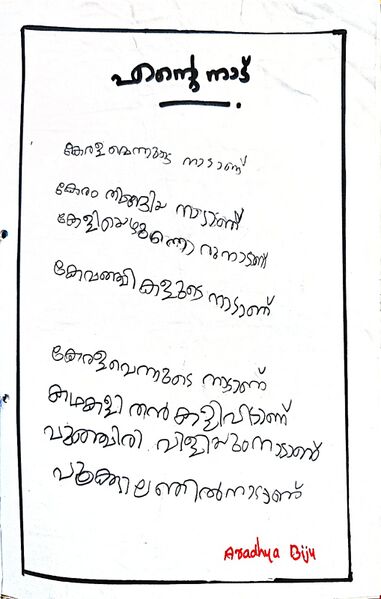 എന്റെ നാട്
കേരളമെന്നുടെ നാടാണ്
കേരം തിങ്ങിയ നാടാണ്
കേളിയെഴുന്നൊരു നാടാണ്
കേവഞ്ചികളുടെ നാടാണ്
കേരളമെന്നുടെ നാടാണ്
കഥകളി തൻ കളിവീടാണ്
പുഞ്ചിരി വിളിയും നാടാണ്
നാടാണ്
Aradhya Biju